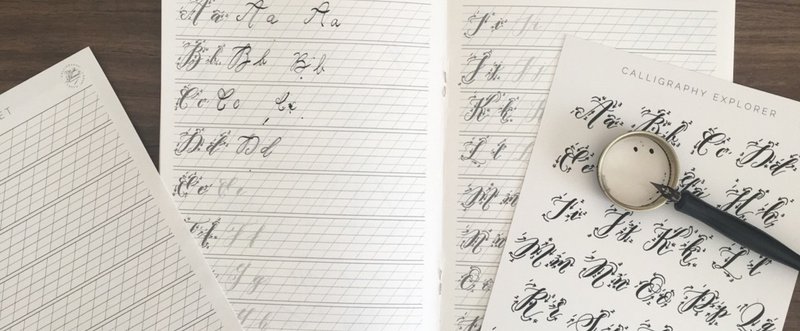 ET
Aa Aa Aa
Bb Bb Bb
Cc Cc Cc
Dd Dd
Ee Ee
Ff Ff
Gg
Hh
Ii Ii
Jj Jj
Kk Kk
Ll Ll
Mm M
Nn
Oo
CALLIGRAPHY EXPLORER
Aa Bb Cc Dd
Ee Hh
Ii Jj Kk Ll
Mm Nn Oo Pp
Rr S